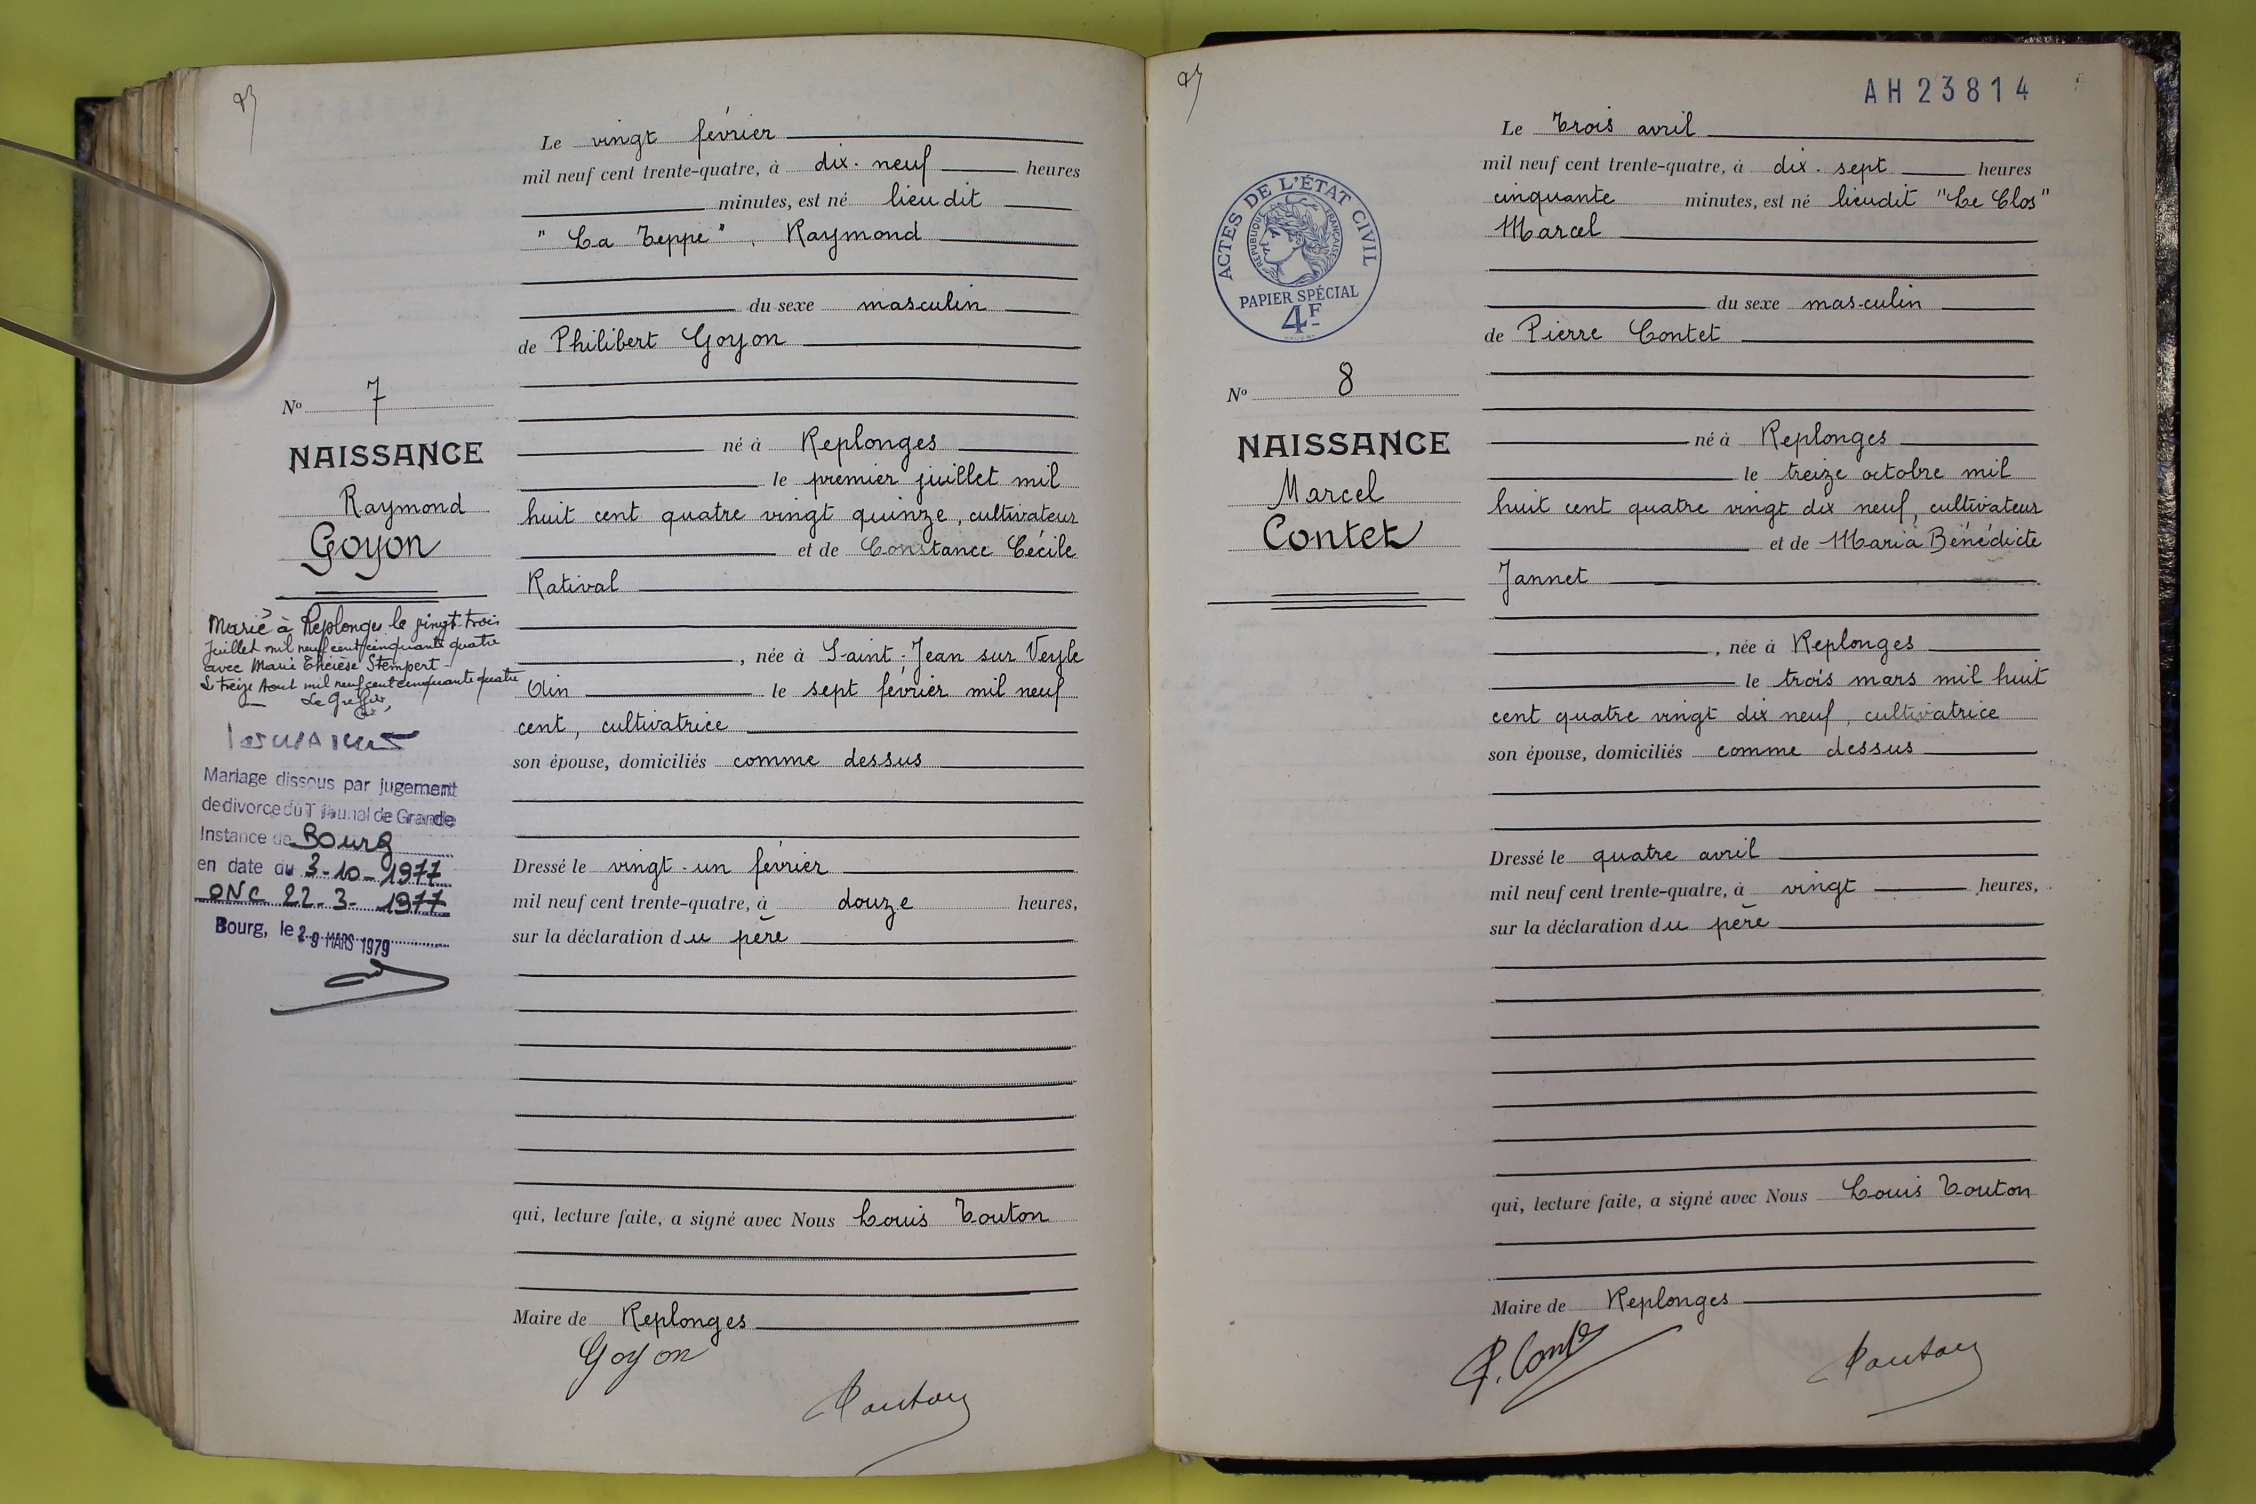 Le vingt février
mil neuf cent trente-quatre, à dix-neuf heures
minutes, est né lieudit
"La Teppe", Raymond
du sexe masculin
de Philibert Goyon
né à Replonges
le premier juillet mil
huit cent quatre vingt quinze, cultivateur
et de Constance Cécile
Ratival
, née à Saint-Jean sur Veyle
Ain le sept février mil neuf
cent, cultivatrice
son épouse, domiciliés comme dessus
Dressé le vingt-un février
mil neuf cent trente-quatre, à douze heures,
sur la déclaration du père
qui, lecture faite, a signé avec Nous Louis Touton
Maire de Replonges
Goyon
Touton
No 7
NAISSANCE
Raymond
Goyon
Marié à Replonges le vingt-trois
Juillet mil neuf cent cinquante quatre
avec Marie Thérèse Stempert
Le treize Aout mil neuf cent cinquante quatre
Le Greffier,
Mariage dissous par jugement
de divorce du Tribunal de Grande
Instance de Bourg
en date du 3-10-1977
ONC 22-3-1977
Bourg, le 29 MARS 1979
AH23814
Le trois avril
mil neuf cent trente-quatre, à dix-sept heures
cinquante minutes, est né lieudit "Le Clos"
Marcel
du sexe masculin
de Pierre Contet
né à Replonges
le treize octobre mil
huit cent quatre vingt dix neuf, cultivateur
et de Maria Bénédicte
Jannet
, née à Replonges
le trois mars mil huit
cent quatre vingt dix neuf, cultivatrice
son épouse, domiciliés comme dessus
Dressé le quatre avril
mil neuf cent trente-quatre, à vingt heures,
sur la déclaration du père
qui, lecture faite, a signé avec Nous Louis Touton
Maire de Replonges
P. Contet
Touton
ACTES DE L'ÉTAT CIVIL
RÉPUBLIQUE FRANÇAISE
PAPIER SPÉCIAL
4F
No 8
NAISSANCE
Marcel
Contet